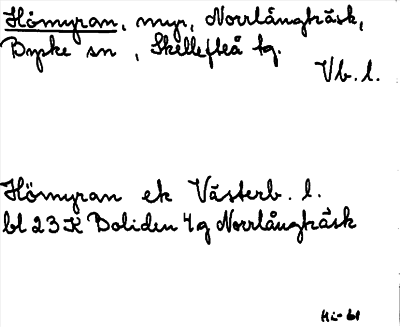 Hömyran, myr, Norrlångträsk,
Byske sn, Skellefteå tg.
Vb. l.
Hömyran ek Västerb. l.
bl 23 K Boliden 4g Norrlångträsk
Hi-61